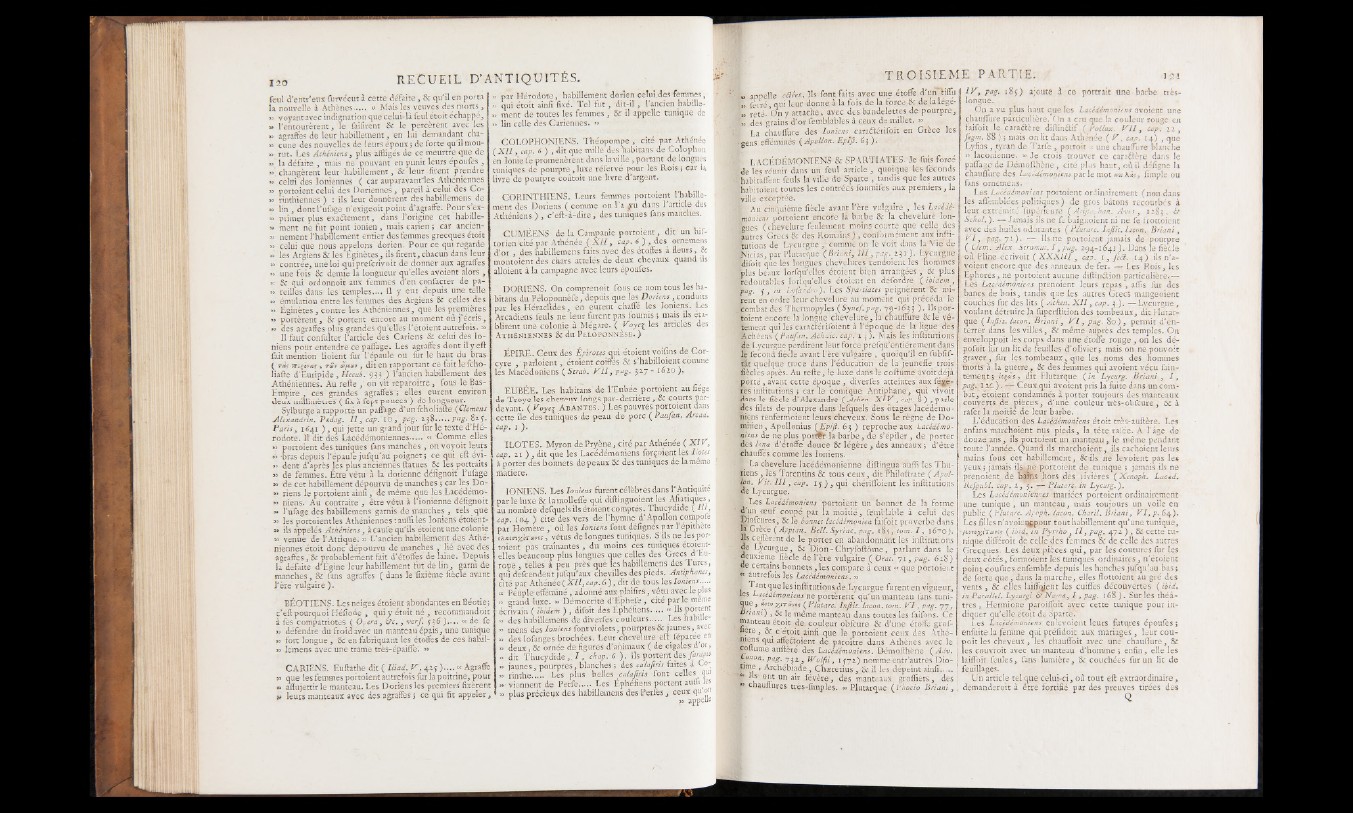 120
RECUEIL D'ANTIQUITÉS.
ſeul d'entr'eux ſurvécut à cette défaite, & qu'il en porta
la nouvelle à Athènes..... « Mais les veuves des morts,
» voyant avec indignation que celui-là ſeul étoit échappé,
» l'entourèrent, le ſaiſirent & le percèrent avec les
» agraffes de leur habillement, en lui demandant cha-
» cune des nouvelles de leurs époux; de ſorte qu'il mou-
» rut. Les Athéniens, plus affligés de ce meurtre que de
» la défaite, mais ne pouvant en punir leurs épouſes,
» changèrent leur habillement, & leur firent prendre
» celui des Ioniennes (car auparavant les Athéniennes
» portoient celui des Doriennes, pareil à celui des Co-
» rinthiennes) : ils leur donnèrent des habillemens de
» lin, dont l'uſage n'exigeoit point d'agraffe. Pour s'ex-
» primer plus exactement, dans l'origine cet habille-
» ment ne fut point ionien, mais carien; car ancien-
» nement l'habillement entier des femmes grecques étoit
» celui que nous appelons dorien. Pour ce qui regarde
» les Argiens & les Eginètes, ils firent, chacun dans leur
» contrée, une loi qui preſcrivoit de donner aux agraffes
» une fois & demie la longueur qu'elles avoient alors,
» & qui ordonnoit aux femmes d'en conſacrer de pa-
» reilles dans les temples.... Il y eut depuis une telle
» émulation entre les femmes des Argiens & celles des
» Eginetes, contre les Athéniennes, que les premières
» portèrent, & portent encore au moment où j'écris,
» des agraffes plus grandes qu'elles l'étoient autrefois. »
Il faut conſulter l'article des Cariens & celui des Io-
niens pour entendre ce paſſage. Les agraffes dont il y eſt
fait mention fixoient ſur l'épaule ou ſur le haut du bras
dit en rapportant ce fait le ſcho-
liaſte d'Euripide, Hecub. 934) l'ancien habillement des
Athéniennes. Au reſte, on vit reparoître, ſous le Bas-
Empire, ces grandes agraffes; elles eurent environ
deux millimètres (ſix à ſept pouces) de longueur.
Sylburge a rapporté un paſſage d'un ſcholiaſte (Clement
Alexandrin. Pædag. II, cap. 10, pag. 128..... pag. 825.
Paris, 1641), qui jette un grand jour ſur le texte d'Hé-
rodote. Il dit des Lacédémoniennes..... « Comme elles
» portoient des tuniques ſans manches, on voyoit leurs
» bras depuis l'épaule juſqu'au poignet; ce qui eſt évi-
» dent d'après les plus anciennes ſtatues & les portraits
» de femmes. Être vêtu à la dorienne déſignoit l'uſage
» de cet habillement dépourvu de manches; car les Do-
» riens le portoient ainſi, de même que les Lacédémo-
» niens. Au contraire, être vêtu à l'ionienne déſignoit
» l'uſage des habillemens garnis de manches, tels que
» les portoient les Athéniennes: auſſi les Ioniens étoient-
» ils appelés Athéniens, à cauſe qu'ils étoient une colonie
» venue de l'Attique. » L'ancien habillement des Athé-
niennes étoit donc dépourvu de manches, lié avec des
agraffes, & probablement fait d'étoffes de laine. Depuis
la défaite d'Egine leur habillement fut de lin, garni de
manches, & ſans agraffes (dans le ſixième ſiècle avant
l'ère vulgaire).
BÉOTIENS. Les neiges étoient abondantes en Béotie;
c'eſt pourquoi Héſiode, qui y étoit né, recommandoit
à ſes compatriotes (O. erga, &c., verſ. 536).... « de ſe
» défendre du froid avec un manteau épais, une tunique
» fort longue, & en fabriquant les étoffes de ces habil-
» lemens avec une trame très-épaiſſe. »
CARIENS. Euſtathe dit (Iliad. V, 425).... « Agraffe
» que les femmes portoient autrefois ſur la poitrine, pour
» aſſujettir le manteau. Les Doriens les premiers fixèrent
» leurs manteaux avec des agraffes; ce qui fit appeler,
» par Hérodote, habillement dorien celui des femmes,
» qui étoit ainſi fixé. Tel fut, dit-il, l'ancien habille-
» ment de toutes les femmes, & il appelle tunique de
» lin celle des Cariennes. »
COLOPHONIENS. Théopompe, cité par Athénée
(XII, cap. 6), dit que mille des habitans de Colophon
en Ionie ſe promenèrent dans la ville, portant de longues
tuniques de pourpre, luxe réſervé pour les Rois; car la
livre de pourpre coûtoit une livre d'argent.
CORINTHIENS. Leurs femmes portoient l'habille-
ment des Doriens (comme on l'a vu dans l'article des
Athéniens), c'eſt-à-dire, des tuniques ſans manches.
CUMÉENS de la Campanie portoient, dit un hiſ-
torien cité par Athénée (XII, cap. 6), des ornemens
d'or, des habillemens faits avec des étoffes à fleurs, &
montoient des chars attelés de deux chevaux quand ils
alloient à la campagne avec leurs épouſes.
DORIENS. On comprenoit ſous ce nom tous les ha-
bitans du Péloponnèſe, depuis que les Doriens, conduits
par les Héraclides, en eurent chaſſé les Ioniens. Les
Arcadiens ſeuls ne leur furent pas ſoumis; mais ils éta-
blirent une colonie à Mégare. (Voyez les articles des
ATHÉNIENNES & du PÉLOPONNÈSE.)
EPIRE. Ceux des Epirotes qui étoient voiſins de Cor-
cyre, parloient, étoient coiffés & s'habilloient comme
les Macédoniens (Strab. VII, pag. 327 = 1620).
EUBÉE. Les habitans de l'Eubée portoient au ſiége
de Troye les cheveux longs par-derrière, & courts par-
devant. (Voyez ABANTES.) Les pauvres portoient dans
cette île des tuniques de peau de porc (Pauſan. Arcad.
cap. 1).
ILOTES. Myron de Pryène, cité par Athénée (XIV,
cap. 21), dit que les Lacédémoniens forçoient les Ilotes
à porter des bonnets de peaux & des tuniques de la même
matière.
IONIENS. Les Ioniens furent célèbres dans l'Antiquité
par le luxe & la molleſſe qui diſtinguoient les Aſiatiques,
au nombre deſquels ils étoient comptés. Thucydide (III,
cap. 104) cite des vers de l'hymne d'Apollon compoſé
par Homère, où les Ioniens ſont déſignés par l'épithète
vêtus de longues tuniques. S'ils ne les por-
toient pas traînantes, du moins ces tuniques étoient-
elles beaucoup plus longues que celles des Grecs d'Eu-
rope, telles à peu près que les habillemens des Turcs,
qui deſcendent juſqu'aux chevilles des pieds. Antiphane,
cité par Athénée (XII, cap. 6), dit de tous les Ioniens.....
« Peuple efféminé, adonné aux plaiſirs, vêtu avec le plus
» grand luxe. » Démocrite d'Ephèſe, cité par le même
écrivain (ibidem), diſoit des Ephéſiens..... « Ils portent
» des habillemens de diverſes couleurs..... Les habille-
» mens des Ioniens ſont violets, pourpres & jaunes, avec
» des loſanges brochées. Leur chevelure eſt ſéparée en
» deux, & ornée de figures d'animaux (de cigales d'or,
» dit Thucydide, I, chap. 6). Ils portent des ſarapes
» jaunes, pourpres, blanches: des calaſiris faites à Co-
» rinthe..... Les plus belles calaſiris ſont celles qui
» viennent de Perſe..... Les Ephéſiens portent auſſi les
» plus précieux des habillemens des Perſes, ceux qu'on
» appelle
TROISIEME PARTIE.
121
» appelle Ils ſont faits avec une étoffe d'un tiſſu
» ſerré, qui leur donne à la fois de la force & de la légè-
» reté. On y attache, avec des bandelettes de pourpre,
» des grains d'or ſemblables à ceux du millet. »
La chauſſure des Ioniens caractériſoit en Grèce les
gens efféminés (Apollon. Epiſt. 63).
LACÉDÉMONIENS & SPARTIATES. Je ſuis forcé
de les réunir dans un ſeul article, quoique les ſeconds
habitaſſent ſeuls la ville de Sparte, tandis que les autres
habitoient toutes les contrées ſoumiſes aux premiers, la
ville exceptée.
Au cinquième ſiècle avant l'ère vulgaire, les Lacédé-
moniens portoient encore la barbe & la chevelure lon-
gues (chevelure ſeulement moins courte que celle des
autres Grecs & des Romains), conformément aux inſti-
tutions de Lycurgue, comme on le voit dans la Vie de
Nicias, par Plutarque (Briani, III, pag. 232). Lycurgue
diſoit que les longues chevelures rendoient les hommes
plus beaux lorſqu'elles étoient bien arrangées, & plus
redoutables lorſqu'elles étoient en déſordre (ibidem,
Les Spartiates peignèrent & mi-
rent en ordre leur chevelure au moment qui précéda le
combat des Thermopyles (Syneſ. pag. 79=1633). Ils por-
toient encore la longue chevelure, la chauſſure & le vê-
tement qui les caractériſoient à l'époque de la ligue des
Achéens (Pauſan. Achaic. cap. 1). Mais les inſtitutions
de Lycurgue perdirent leur force preſqu'entièrement dans
le ſecond ſiècle avant l'ère vulgaire, quoiqu'il en ſubſiſ-
tât quelque trace dans l'éducation de la jeuneſſe trois
ſiècles après. Au reſte, le luxe dans le coſtume avoit déjà
porté, avant cette époque, diverſes atteintes aux ſevè-
res inſtitutions; car le comique Antiphane, qui vivoit
dans le ſiècle d'Alexandre (Athen. XIV, cap. 8), parle
des filets de pourpre dans leſquels des ôtages lacédémo-
niens renfermoient leurs cheveux. Sous le règne de Do-
mitien, Apollonius (Epiſt. 63) reproche aux Lacédémo-
niens de ne plus porter la barbe, de s'épiler, de porter
des læna d'étoffe douce & légère, des anneaux; d'être
chauſſés comme les Ioniens.
La chevelure lacédémonienne diſtingua auſſi les Thu-
riens, les Tarentins & tous ceux, dit Philoſtrate (Apol-
lon. Vit. III, cap. 15), qui chériſſoient les inſtitutions
de Lycurgue.
Les Lacédémoniens portoient un bonnet de la forme
d'un œuf coupé par la moitié, ſemblable à celui des
Dioſcures, & le bonnet lacédémonien faiſoit proverbe dans
la Grèce (Appian. Bell. Syriac. pag. 185, tom. I, 1670).
Ils ceſſèrent de le porter en abandonnant les inſtitutions
de Lycurgue, & Dion-Chryſoſtôme, parlant dans le
deuxième ſiècle de l'ère vulgaire (Orat. 72, pag. 628)
de certains bonnets, les compare à ceux « que portoient
» autrefois les Lacédémoniens. »
Tant que les inſtitutions de Lycurgue furent en vigueur,
les Lacédémoniens ne portèrent qu'un manteau ſans tuni-
que, (Plutarc. Inſtit. lacon. tom. VI, pag. 77,
Briani), & le même manteau dans toutes les ſaiſons. Ce
manteau étoit de couleur obſcure & d'une étoffe groſ-
ſière, & c'étoit ainſi que le portoient ceux des Athé-
niens qui affectoient de paroître dans Athènes avec le
coſtume auſtère des Lacédémoniens. Démoſthène (Adv.
Conon. pag. 732, Wolfii, 1572) nomme entr'autres Dio-
time, Archébiade, Chæretius, & il les dépeint ainſi.....
« Ils ont un air ſévère, des manteaux groſſiers, des
» chauſſures très-ſimples. » Plutarque (Phocio Briani,
IV, pag. 185) ajoute à ce portrait une barbe très-
longue.
On a vu plus haut que les Lacédémoniens avoient une
chauſſure particulière. On a cru que la couleur rouge en
faiſoit le caractère diſtinctif (Pollux. VII, cap. 22,
ſegm. 88); mais on lit dans Athénée (V, cap. 14), que
Lyſias, tyran de Tarſe, portoit « une chauſſure blanche
» laconienne. » Je crois trouver ce caractère dans le
paſſage de Démoſthène, cité plus haut, où il déſigne la
chauſſure des Lacédémoniens par le mot ſimple ou
ſans ornemens.
Les Lacédémoniens portoient ordinairement (non dans
les aſſemblées politiques) de gros bâtons recourbés à
leur extrémité ſupérieure
Jamais ils ne ſe baignoient ni ne ſe frottoient
avec des huiles odorantes (Plutarc. Inſtit. lacon, Briani,
VI, pag. 72). — Ils ne portoient jamais de pourpre
(Clem. Alex. Stromat. I, pag. 294=1641). Dans le ſiècle
où Pline écrivoit (XXXIII, cap. 1, ſect. 14) ils n'a-
voient encore que des anneaux de fer. — Les Rois, les
Ephores, ne portoient aucune diſtinction particulière. —
Les Lacédémoniens prenoient leurs repas, aſſis ſur des
bancs de bois, tandis que les autres Grecs mangeoient
couchés ſur des lits (Athen. XII, cap. 3). — Lycurgue,
voulant détruire la ſuperſtition des tombeaux, dit Plutar-
que (Inſtit. lacon. Briani, VI, pag. 80), permit d'en-
terrer dans les villes, & même auprès des temples. On
enveloppoit les corps dans une étoffe rouge, on les dé-
poſoit ſur un lit de feuilles d'olivier; mais on ne pouvoit
graver, ſur les tombeaux, que les noms des hommes
morts à la guerre, & des femmes qui avoient vécu ſain-
tement; dit Plutarque (In Lycurg. Briani, I,
— Ceux qui avoient pris la fuite dans un com-
bat, étoient condamnés à porter toujours des manteaux
couverts de pièces, d'une couleur très-obſcure, & à
raſer la moitié de leur barbe.
L'éducation des Lacédémoniens étoit très-auſtère. Les
enfans marchoient nus pieds, la tête raſée. A l'âge de
douze ans, ils portoient un manteau, le même pendant
toute l'année. Quand ils marchoient, ils cachoient leurs
mains ſous cet habillement, & ils ne levoient pas les
yeux; jamais ils ne portoient de tunique; jamais ils ne
prenoient de bains hors des rivières (Xenoph. Laced.
Reſpubl. cap. 2, 5. — Plutarc. in Lycurg.).
Les Lacédémoniennes mariées portoient ordinairement
une tunique, un manteau, mais toujours un voile en
public (Plutarc. Apoph. lacon. Charil. Briani, VI, p. 64).
Les filles n'avoient pour tout habillement qu'une tunique,
(ibid. in Pyrrho, II, pag. 472), & cette tu-
nique différoit de celle des femmes & de celle des autres
Grecques. Les deux pièces qui, par les coutures ſur les
deux côtés, formoient les tuniques ordinaires, n'étoient
point couſues enſemble depuis les hanches juſqu'au bas;
de ſorte que, dans la marche, elles flottoient au gré des
vents, & elles laiſſoient les cuiſſes découvertes (ibid.
in Parallel. Lycurgi & Numæ, I, pag. 168). Sur les théâ-
tres, Hermione paroiſſoit avec cette tunique pour in-
diquer qu'elle étoit de Sparte.
Les Lacédémoniens enlevoient leurs futures épouſes;
enſuite la femme qui préſidoit aux mariages, leur cou-
poit les cheveux, les chauſſoit avec une chauſſure, &
les couvroit avec un manteau d'homme; enfin, elle les
laiſſoit ſeules, ſans lumière, & couchées ſur un lit de
feuillages.
Un article tel que celui-ci, où tout eſt extraordinaire,
demanderoit à être fortifié par des preuves tirées des
Q